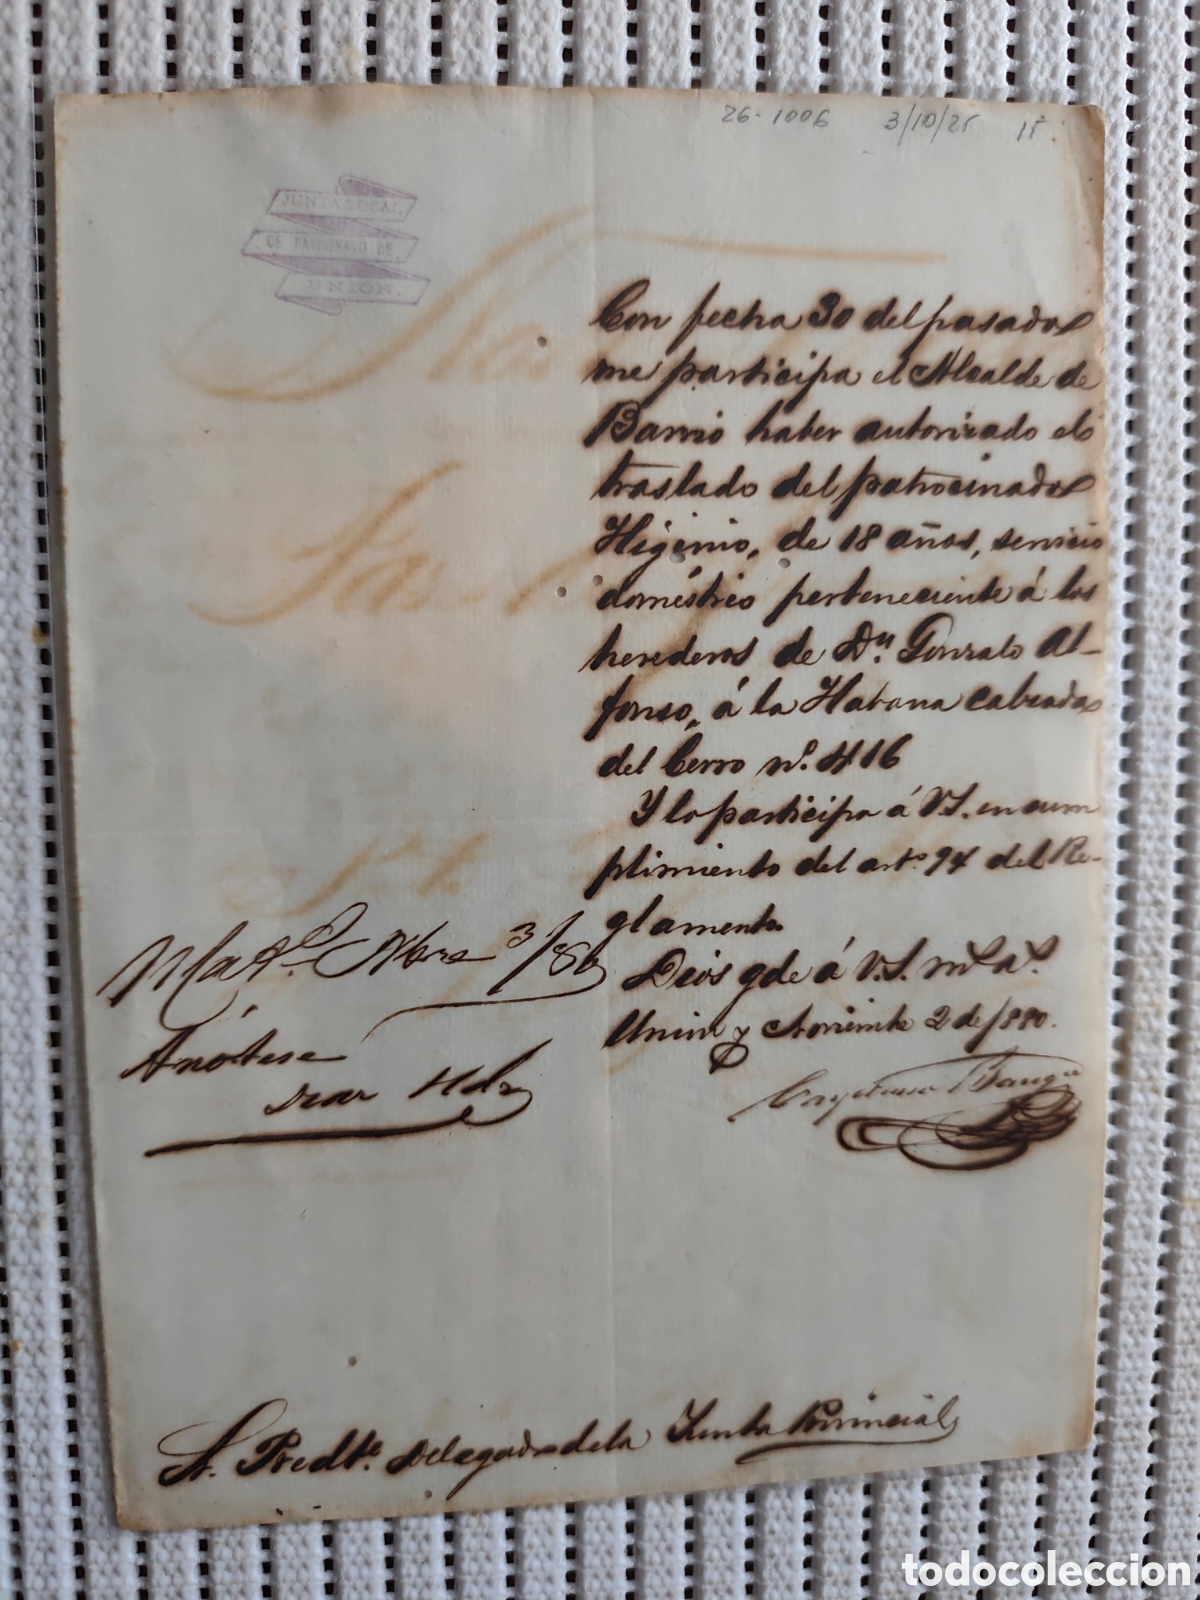 26-1006 3/10/25 15
JUNTA LOCAL
DE PATRONATO DE
UNION.
Con fecha 30 del pasado
me participa el Alcalde de
Barrio haber autorizado el
traslado del patrocinado
Higinio, de 18 años, servicio
doméstico perteneciente á los
herederos de Dn. Gonzalo Al-
fonso, á la Habana Calzada
del Cerro nº. 416
Y lo participo á V.S. en cum
plimiento del artº 94 del Re-
glamento
Dios gde á V.S. ms. as.
Union y Noviembre 2 de 1880.
Cayetano
Matas. Nbre 3/80
Anótese
Sr. Predte. Delegado de la Junta Provincial
todocoleccion